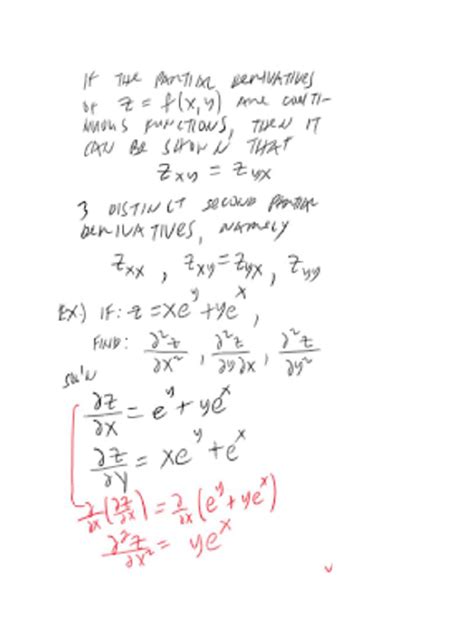 IF THE PARTIAL DERIVATIVES
OF z = f(x,y) ARE CONTI-
NUOUS FUNCTIONS, THEN IT
CAN BE SHOWN THAT
z_xy = z_yx
3 DISTINCT SECOND PARTIAL
DERIVATIVES, NAMELY
z_xx , z_xy = z_yx , z_yy
EX.) IF: z = xe^y + ye^x ,
FIND: ∂²z/∂x² , ∂²z/∂y∂x , ∂²z/∂y²
SOL'N
∂z/∂x = e^y + ye^x
∂z/∂y = xe^y + e^x
∂/∂x (∂z/∂x) = ∂/∂x (e^y + ye^x)
∂²z/∂x² = ye^x